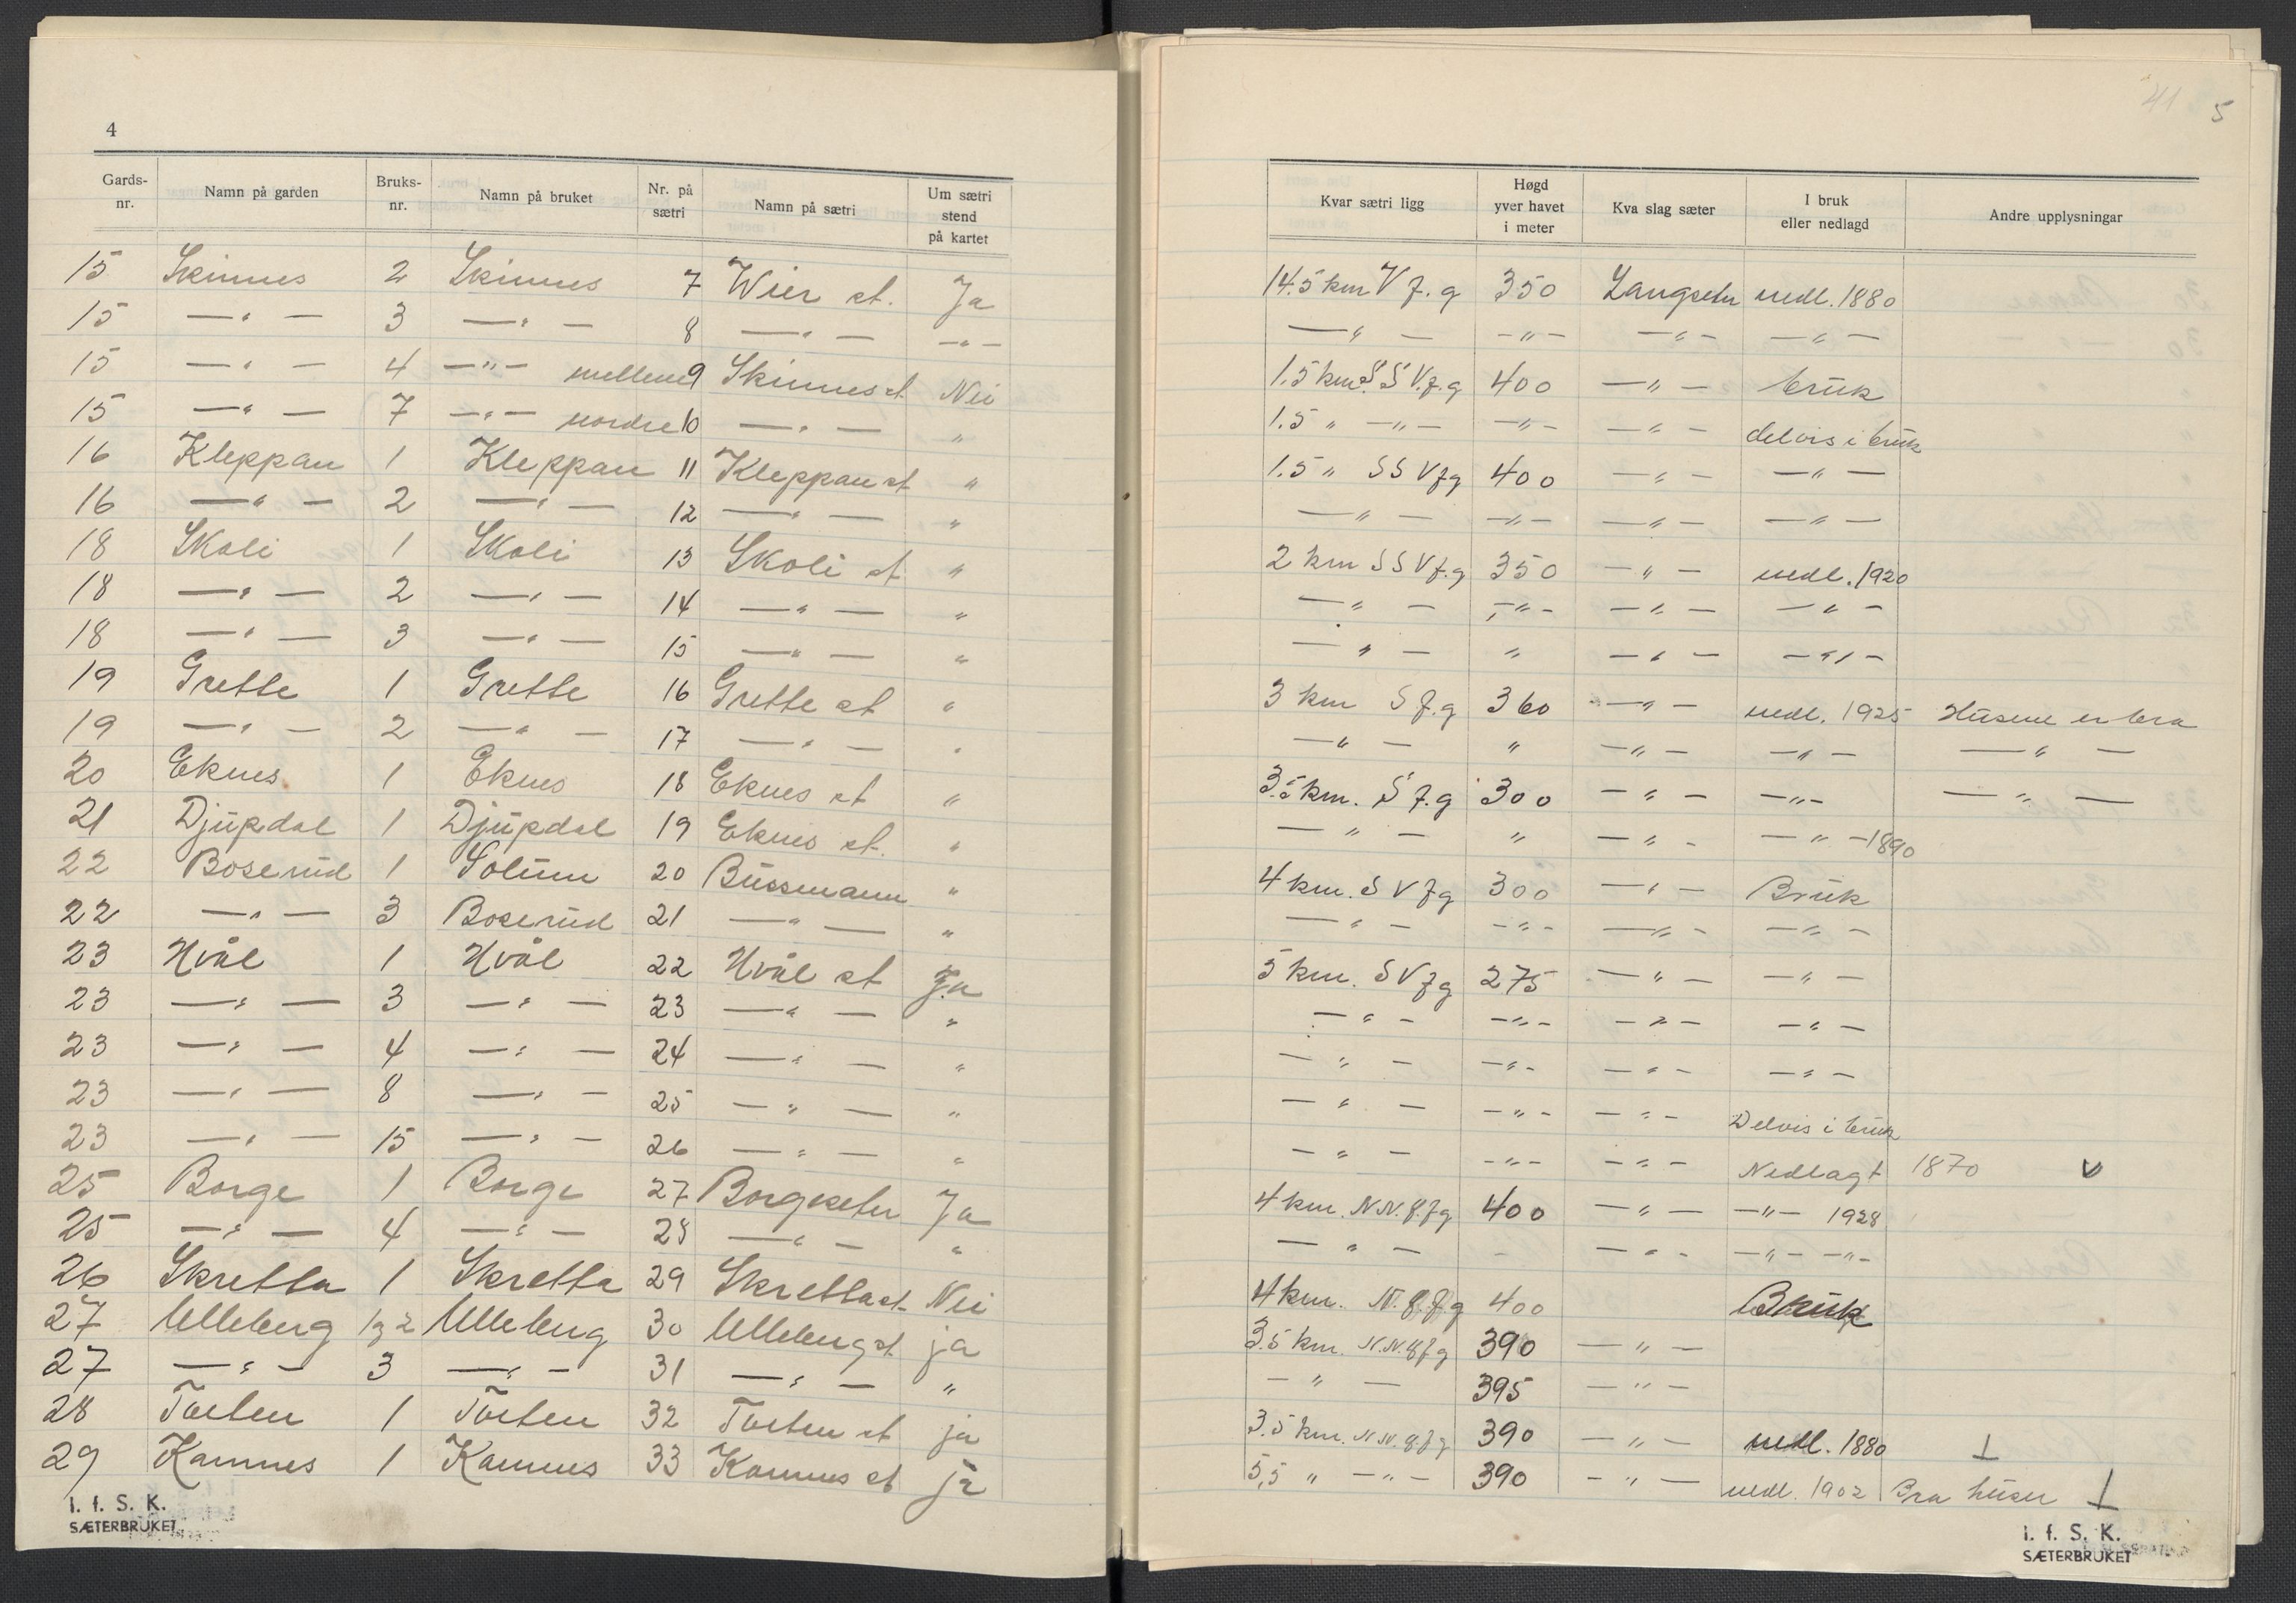 4
Gards-nr. Namn på garden Bruks-nr. Namn på bruket Nr. på sætri Namn på sætri Um sætri stend på kartet
15 Skinnes 2 Skinnes 7 Wier st. Ja
15 — " — 3 — " — 8 — " — — " —
15 — " — 4 — " — mellem 9 Skinnes st Nei
15 — " — 7 — " — nordre 10 — " — "
16 Kleppan 1 Kleppan 11 Kleppan st "
16 — " — 2 — " — 12 — " — "
18 Skoli 1 Skoli 13 Skoli st "
18 — " — 2 — " — 14 — " — "
18 — " — 3 — " — 15 — " — "
19 Grette 1 Grette 16 Grette st "
19 — " — 2 — " — 17 — " — "
20 Eknes 1 Eknes 18 Eknes st "
21 Djupdal 1 Djupdal 19 Eknes st. "
22 Boserud 1 Solum 20 Bussmann "
22 — " — 3 Boserud 21 — " — "
23 Hvål 1 Hvål 22 Hvål st Ja
23 — " — 3 — " — 23 — " — "
23 — " — 4 — " — 24 — " — "
23 — " — 8 — " — 25 — " — "
23 — " — 15 — " — 26 — " — "
25 Borge 1 Borge 27 Borgseter Ja
25 — " — 4 — " — 28 — " — "
26 Skretta 1 Skretta 29 Skretta st Nei
27 Ulleberg 1 2 Ulleberg 30 Ulleberg st ja
27 — " — 3 — " — 31 — " — "
28 Torten 1 Torten 32 Torten st ja
29 Kamnes 1 Kamnes 33 Kamnes st ja
I. f. S. K.
SÆTERBRUKET
41 5
Kvar sætri ligg Høgd yver havet i meter Kva slag sæter I bruk eller nedlagd Andre upplysningar
14.5 km V f. g 350 Langseter nedl. 1880
— " — — " — — " — — " —
1.5 km S S V. f. g 400 — " — bruk
1.5 " — " — — " — — " — delvis i bruk
1.5 " S S V f g 400 — " — — " —
— " — — " — — " — — " —
2 km S S V f. g 350 — " — nedl. 1920
— " — — " — — " — — " —
— " — " — " — — " —
3 km S f. g 360 — " — nedl. 1925 Husene er bra
— " — " — " — — " — — " —
3.5 km. S f. g 300 — " — — " — — " —
— " — " — " — — " — 1890
4 km. S V f g 300 — " — Bruk
— " — — " — — " — — " —
5 km. S V f g 275 — " — — " —
— " — — " — — " — — " —
— " — — " — — " — — " —
— " — — " — — " — Delvis i bruk
— " — — " — — " — Nedlagt 1870 v
4 km. N.N. Ø. f g 400 — " — — " — 1928
— " — - — " — — " — — " —
4 km. N. Ø. f. g 400 Bruk
3.5 km. N.N. Ø f g 390 — " —
— " — 395 — " —
3.5 km. N.N. Ø. f g 390 — " — nedl. 1880 ⊥
5,5 " — " — 390 — " — nedl. 1902 Bra huser ⊥
I. f. S. K.
SÆTERBRUKET